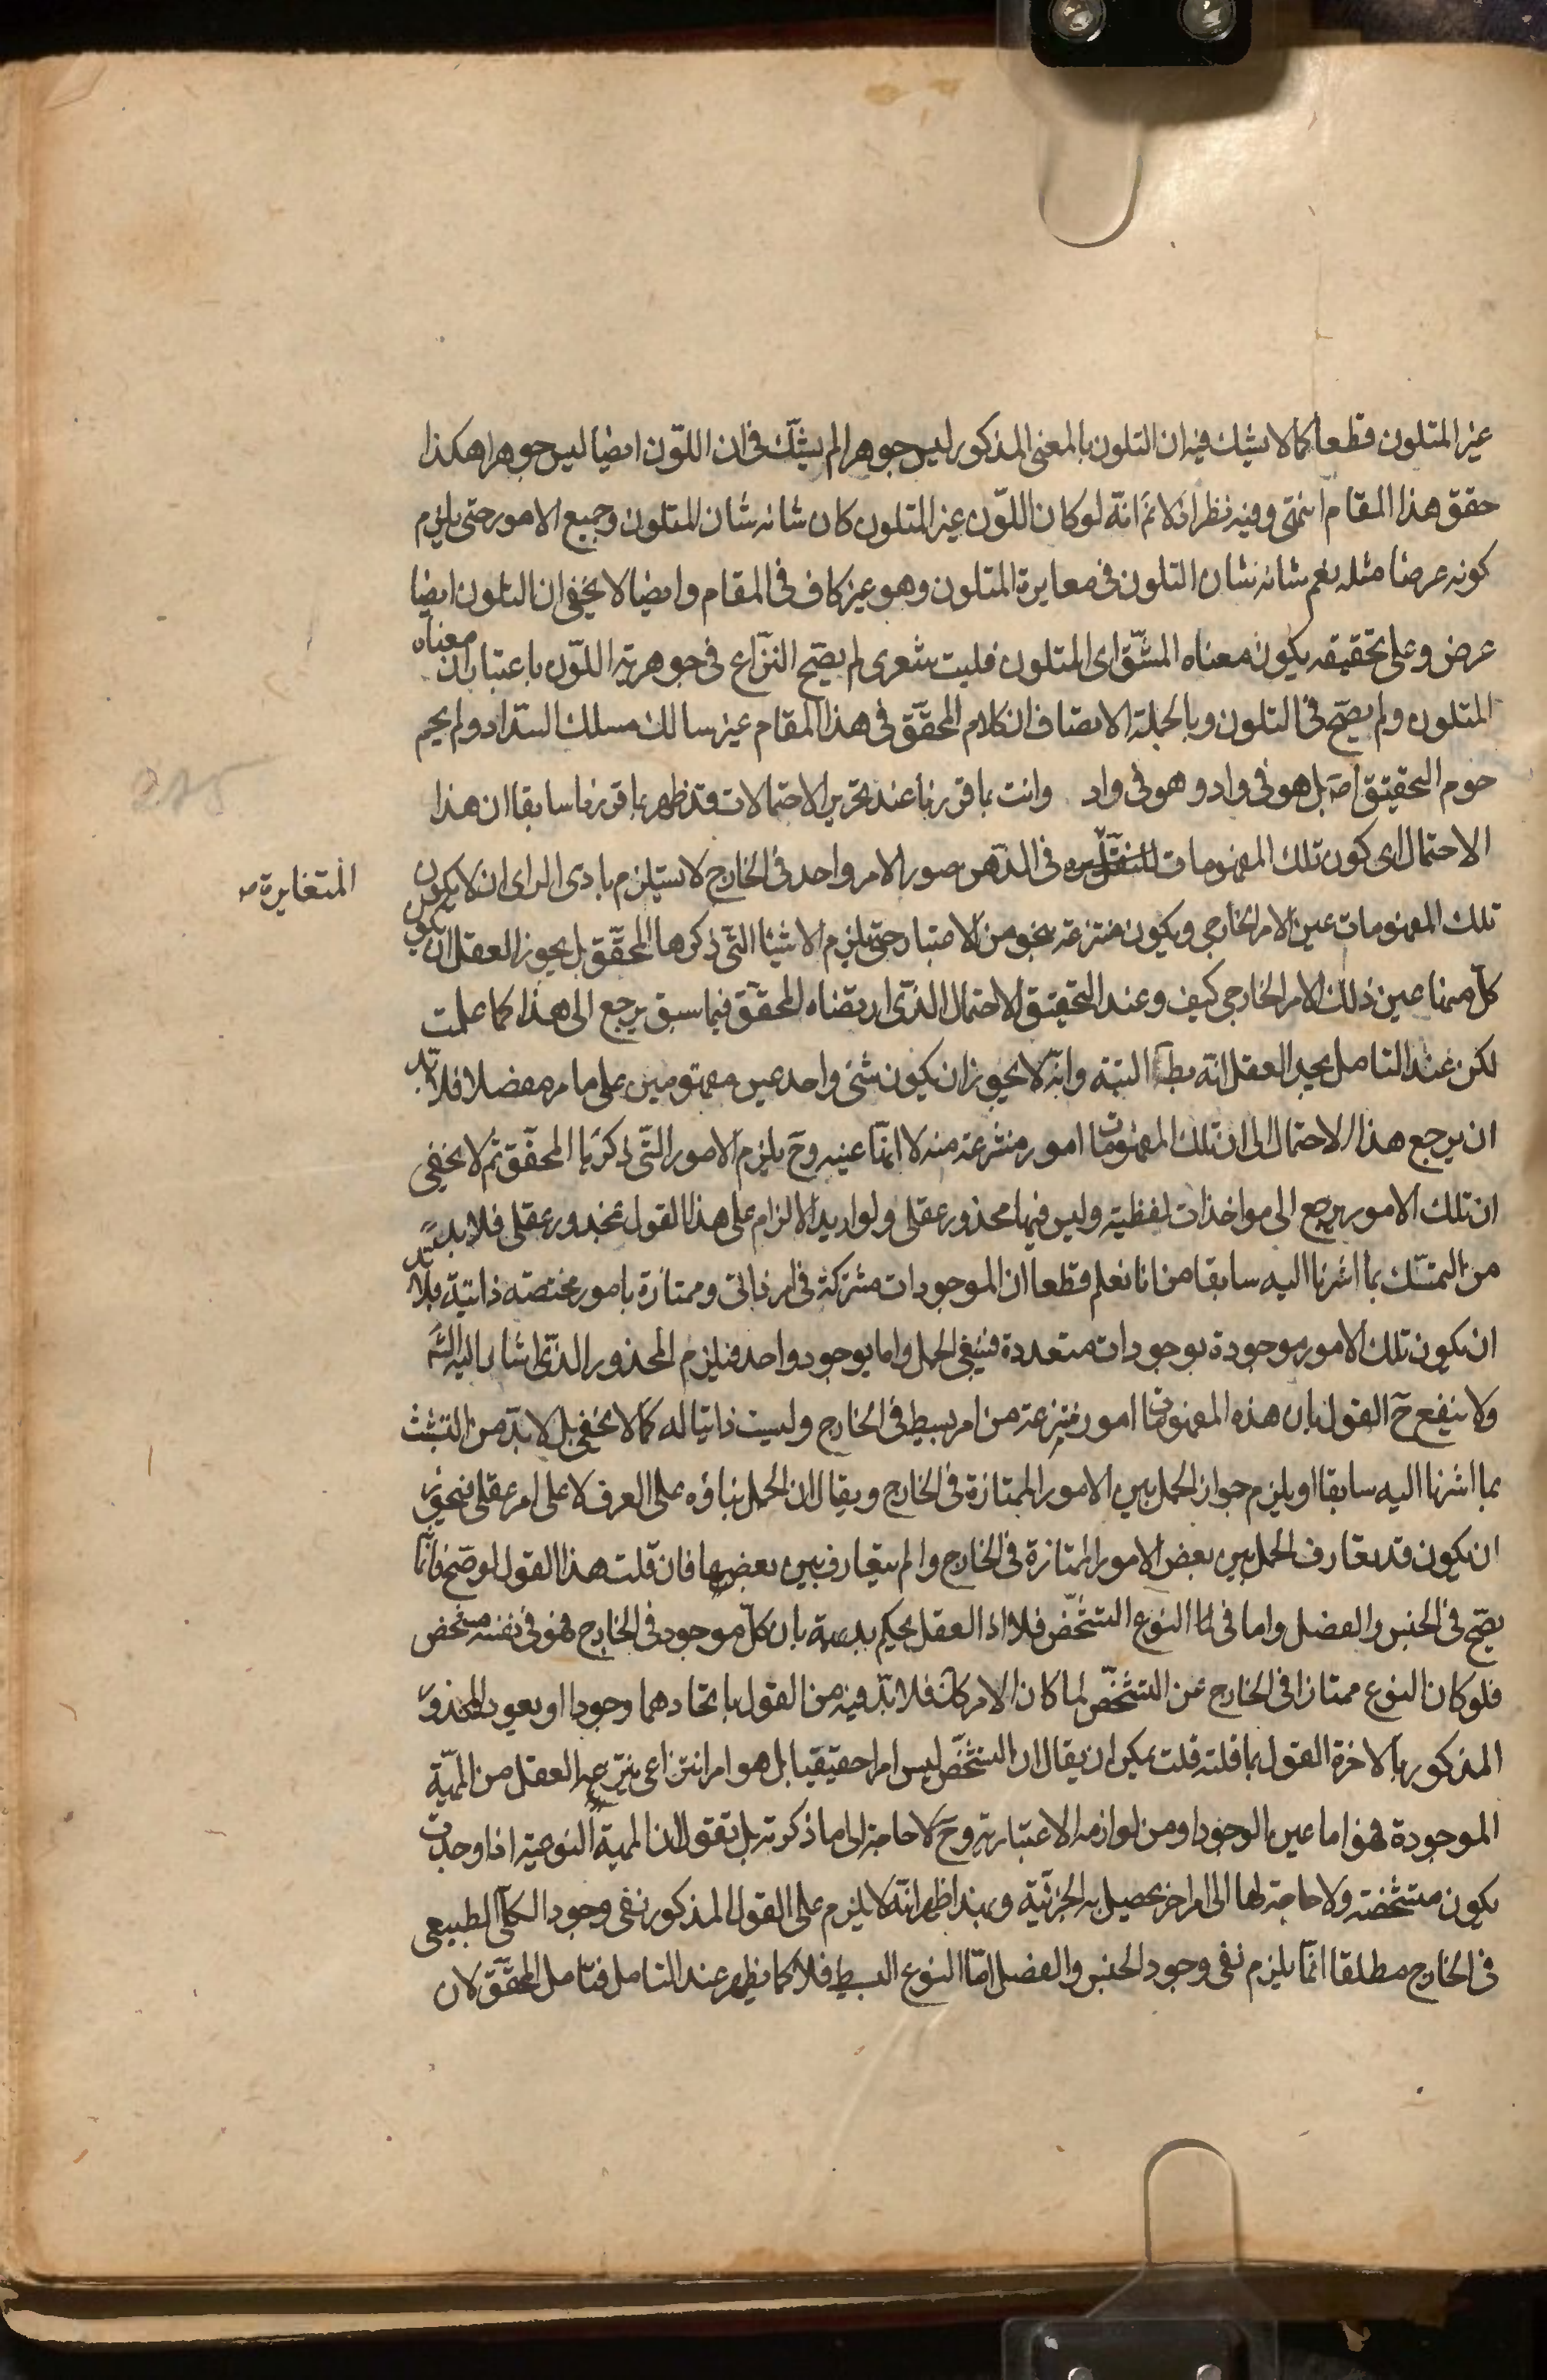 غير المتلون قطعا كما لا يشك فيه ان التلون بالمعنى المذكور ليس جوهرا لم يشك فى ان اللون ايضا ليس جوهرا هكذا
حقق هذا المقام انتهى وفيه نظر اذ لا نم انه لو كان اللون غير المتلون كان شانه شان المتلون وجميع الامور حتى يلزم
كونه عرضا مثله نعم شانه شان التلون فى مغايرة المتلون وهو غير كاف فى المقام وايضا لا يخفى ان التلون ايضا
عرض وعلى تحقيقه يكون معناه المشتق اى المتلون فليت شعرى لم يصح النزاع فى جوهرية اللون باعتبار ان معناه
المتلون ولم يصح فى التلون وبالجملة الانصاف ان كلام المحقق فى هذا المقام غير سالك مسلك السداد ولم يحم
حوم التحقيق اصَ بل هو فى واد وهو فى واد وانت بما قررنا عند تحرير الاحتمالات قد ظهر بما قررنا سابقا ان هذا
الاحتمال اى كون تلك المفهومات فى الذهن صور الامر واحد فى الخارج لا يستلزم بادى الراى ان لا يكون
المتغايرة صـ
تلك المفهومات عين الامر الخارجى ويكون منتزعة بنحو من الاعتبار حتى يلزم الاشيئا التى ذكرها المحقق بل يجوز العقل ان يكون
كل منها عين ذلك الامر الخارجى كيف وعند التحقيق الاحتمال الذى ارتضاه المحقق فيما سبق يرجع الى هذا كما علمت
لكن عند التامل يجد العقل انه بطَ البتة وانه لا يجوز ان يكون شئ واحد عين مفهومين على ما مر مفصلا فلا بد
ان يرجع هذا الاحتمال الى ان تلك المفهومات امور منتزعة منه لا انها عينه وحَ يلزم الامور التى ذكرها المحقق ثم لا يخفى
ان تلك الامور يرجع الى مواخذات لفظية وليس فيها محذور عقلى ولو اريد الالزام على هذا القول بمحذور عقلى فلا بد
من التمسك بما اشرنا اليه سابقا من انا نعلم قطعا ان الموجودات مشتركة فى امر ذاتى وممتازة بامور مختصة ذاتية فلا بد
ان يكون تلك الامور موجودة بوجودات متعددة فينبغى الحمل واما بوجود واحد فيلزم المحذور الذى اشار اليه الشَ
ولا ينفع حَ القول بان هذه المفهومات امور منتزعة من امر بسيط فى الخارج وليست ذاتيا له كما لا يخفى بل لا بد من التشبث
بما اشرنا اليه سابقا او يلزم جواز الحمل بين الامور الممتازة فى الخارج ويقال ان الحمل بناؤه على العرف لا على امر عقلى فيجوز
ان يكون قد يعارف الحمل بين بعض الامور الممتازة فى الخارج ولم يتعارف بين بعضها فان قلت هذا القول لو صح فانما
يصح فى الجنس والفصل واما فى النوع التشخص فلا اذ العقل يحكم بديهة بان كل موجود فى الخارج فهو فى نفسه متشخص
فلو كان النوع ممتازا فى الخارج عن التشخص لما كان الامر كذلك فلا بد فيه من القول باتحادهما وجودا او يعود المحذور
المذكور بالاخرة القول بما قلته قلت يمكن ان يقال ان التشخص ليس امرا حقيقيا بل هو امر انتزاعى ينتزعه العقل من المهية
الموجودة فهو اما عين الوجود او من لوازمه الاعتبارية وحَ لا حاجة الى ما ذكرته بل تقول ان المهية النوعية اذا وجدت
يكون متشخصة ولا حاجة لها الى امر اخر يحصل به الجزئية وبهذا ظهر انه لا يلزم على القول المذكور نفى وجود الكلى الطبيعى
فى الخارج مطلقا انما يلزم نفى وجود الجنس والفصل اما النوع البسيط فلا كما يظهر عند التامل فتامل المحقق لان